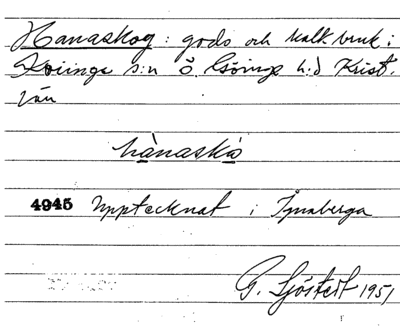 Hanaskog: gods och kalkbruk i
Kviinge s:n Ö. Göinge h:d Krist.
län
hànaskó
4945 Upptecknat i Ignaberga
G. Sjöstedt 1951